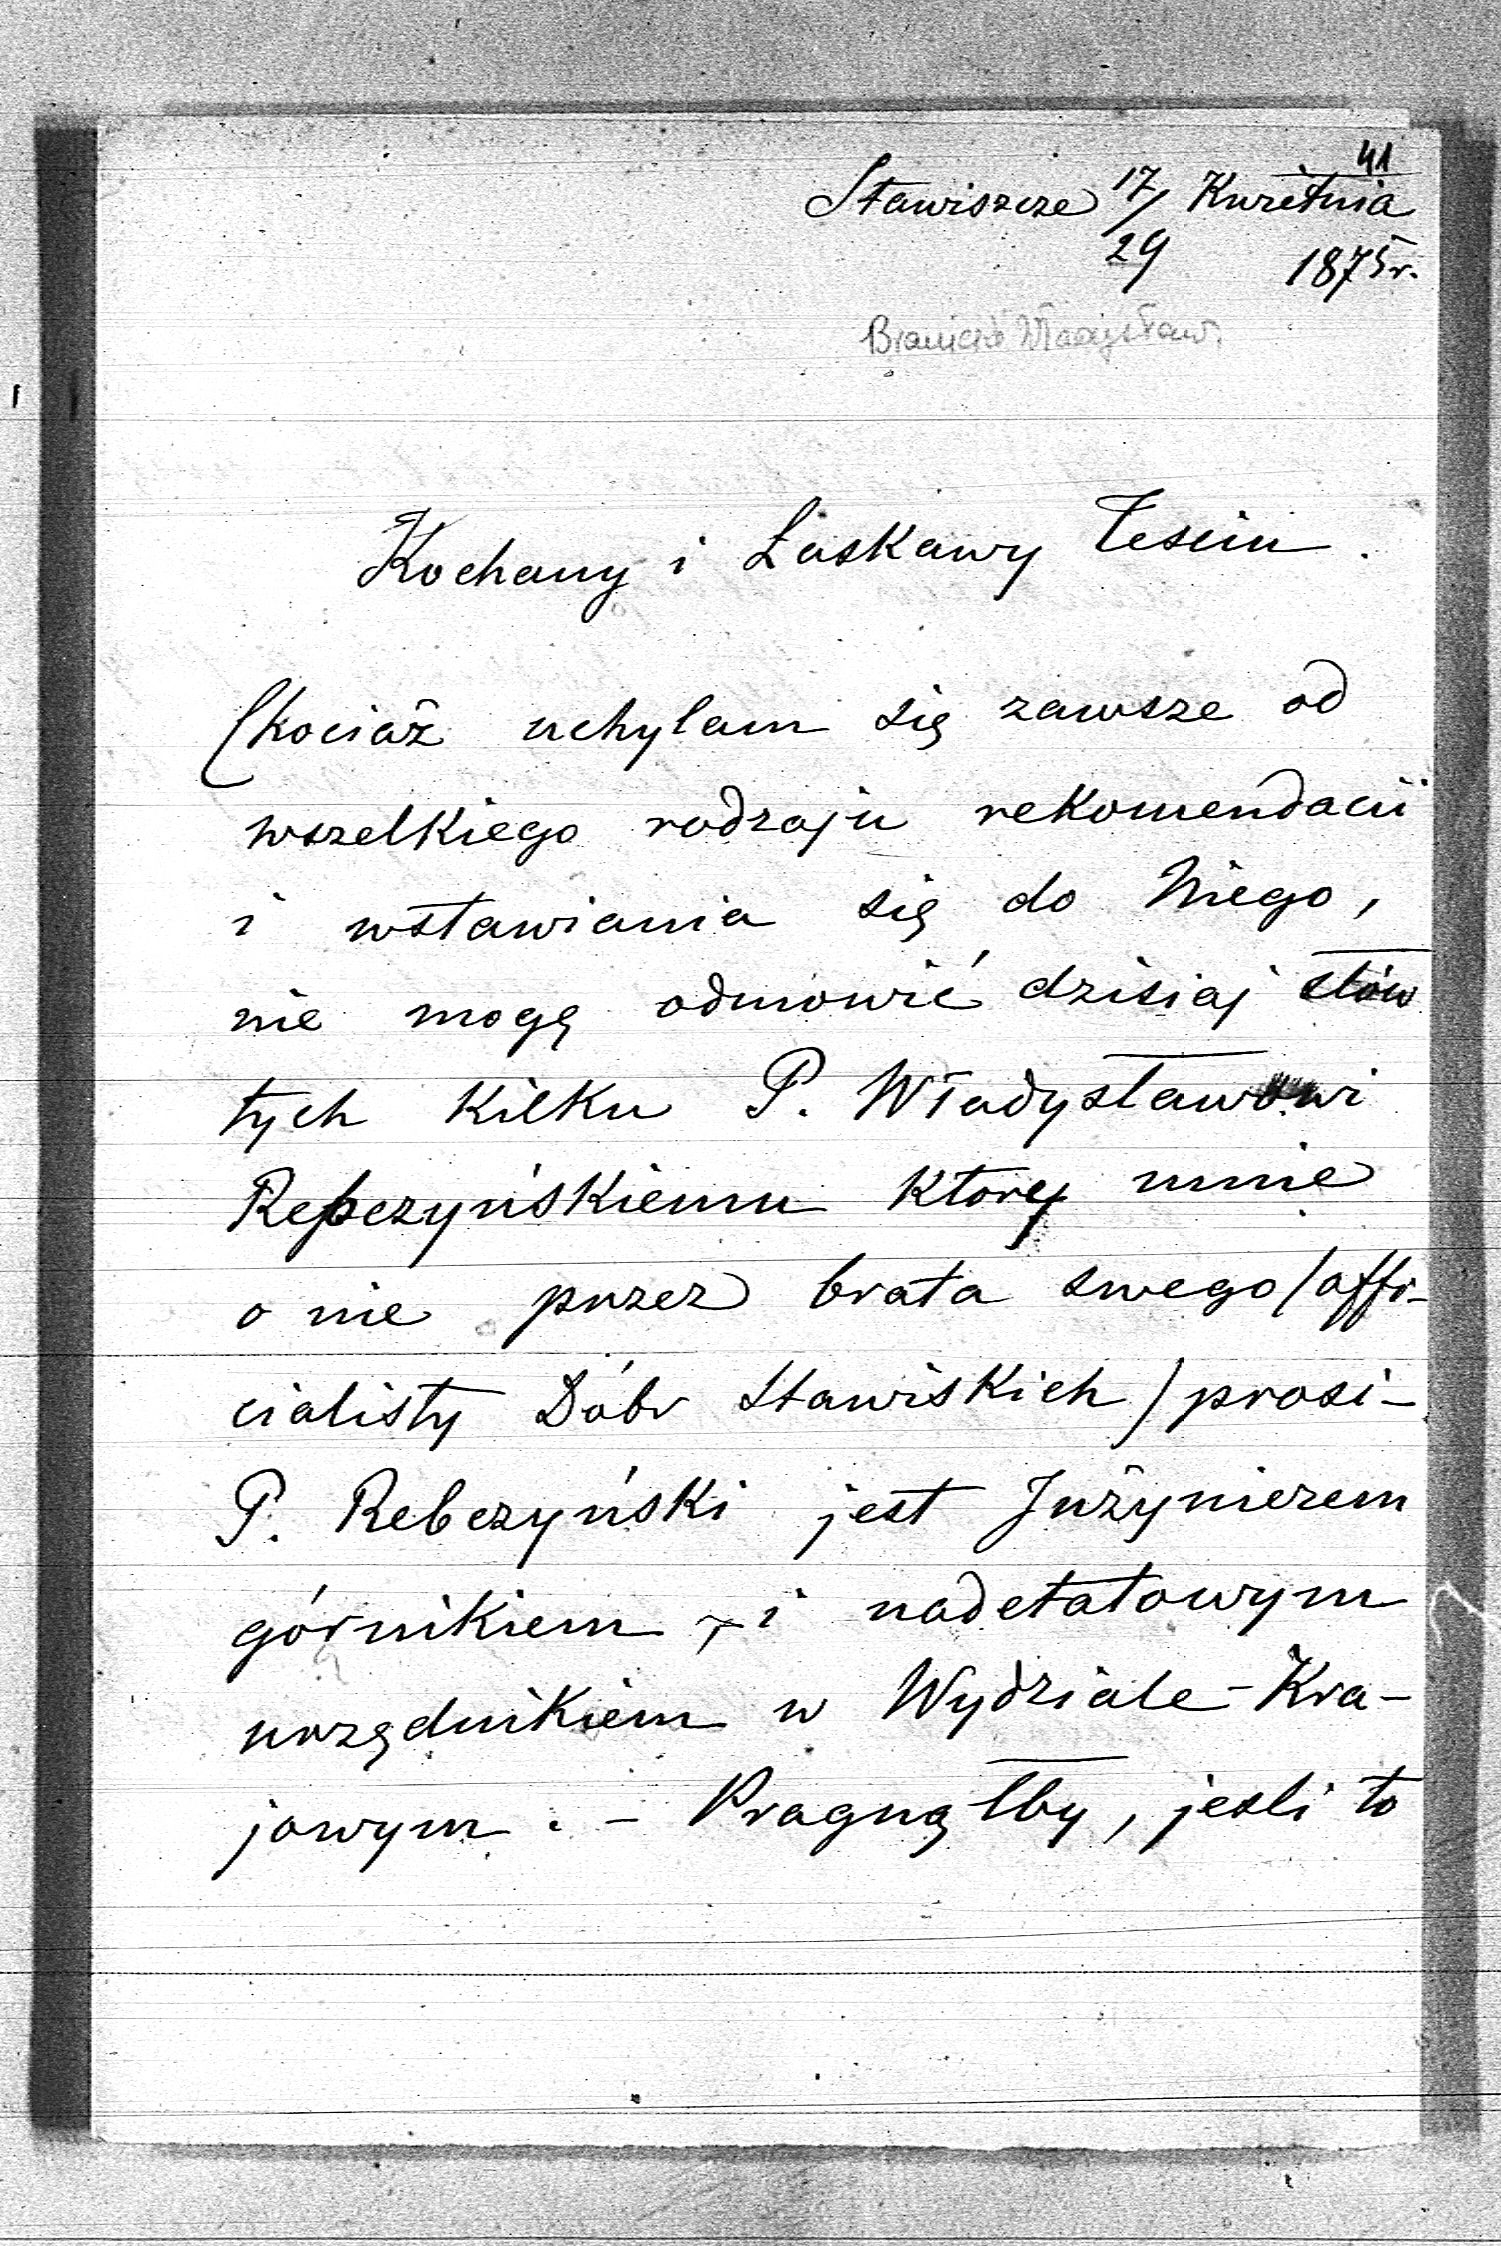 41
Stawiszcze 17/29 Kwietnia
1875 r.
Branicki Władysław.
Kochany i Łaskawy Teściu.
Chociaż uchylam się zawsze od
wszelkiego rodzaju rekomendacii
i wstawiania się do Niego,
nie mogę odmowić dzisiaj słów
tych kilku P. Władysławowi
Rebczyńskiemu który mnie
o nie przez brata swego / offi-
cialisty Dóbr Stawiskich / prosi –
P. Rebczyński jest Inżynierem
górnikiem i nadetatowym
urzędnikiem w Wydziale-Kra-
jowym. – Pragnąłby, jesli to